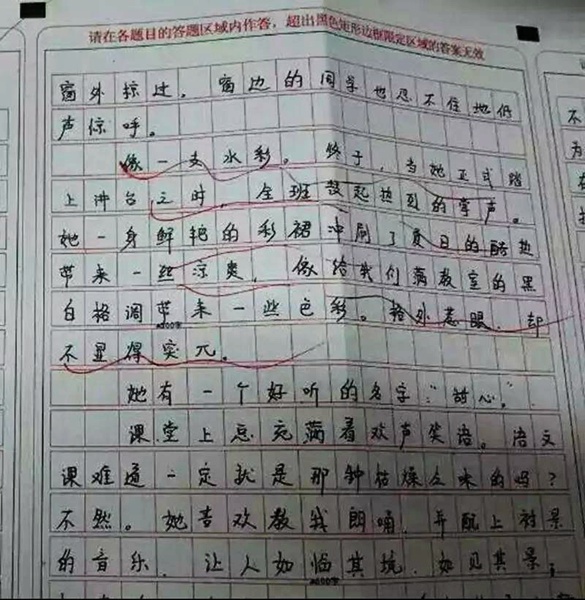 请在各题目的答题区域内作答，超出黑色矩形边框限定区域的答案无效
窗外掠过，窗边的同学也忍不住地低
声惊呼。
像一支水彩。终于，当她正式踏
上讲台之时，全班鼓起热烈的掌声。
她一身鲜艳的彩裙冲刷了夏日的酷热
带来一丝凉爽，像给我们满教室的黑
白格调带来一些色彩。格外惹眼，却
不显得突兀。
她有一个好听的名字："甜心。"
课堂上总充满着欢声笑语。语文
课难道一定就是那种枯燥乏味的吗？
不然。她喜欢教我朗诵，并配上衬景
的音乐，让人如临其境，如见其景；